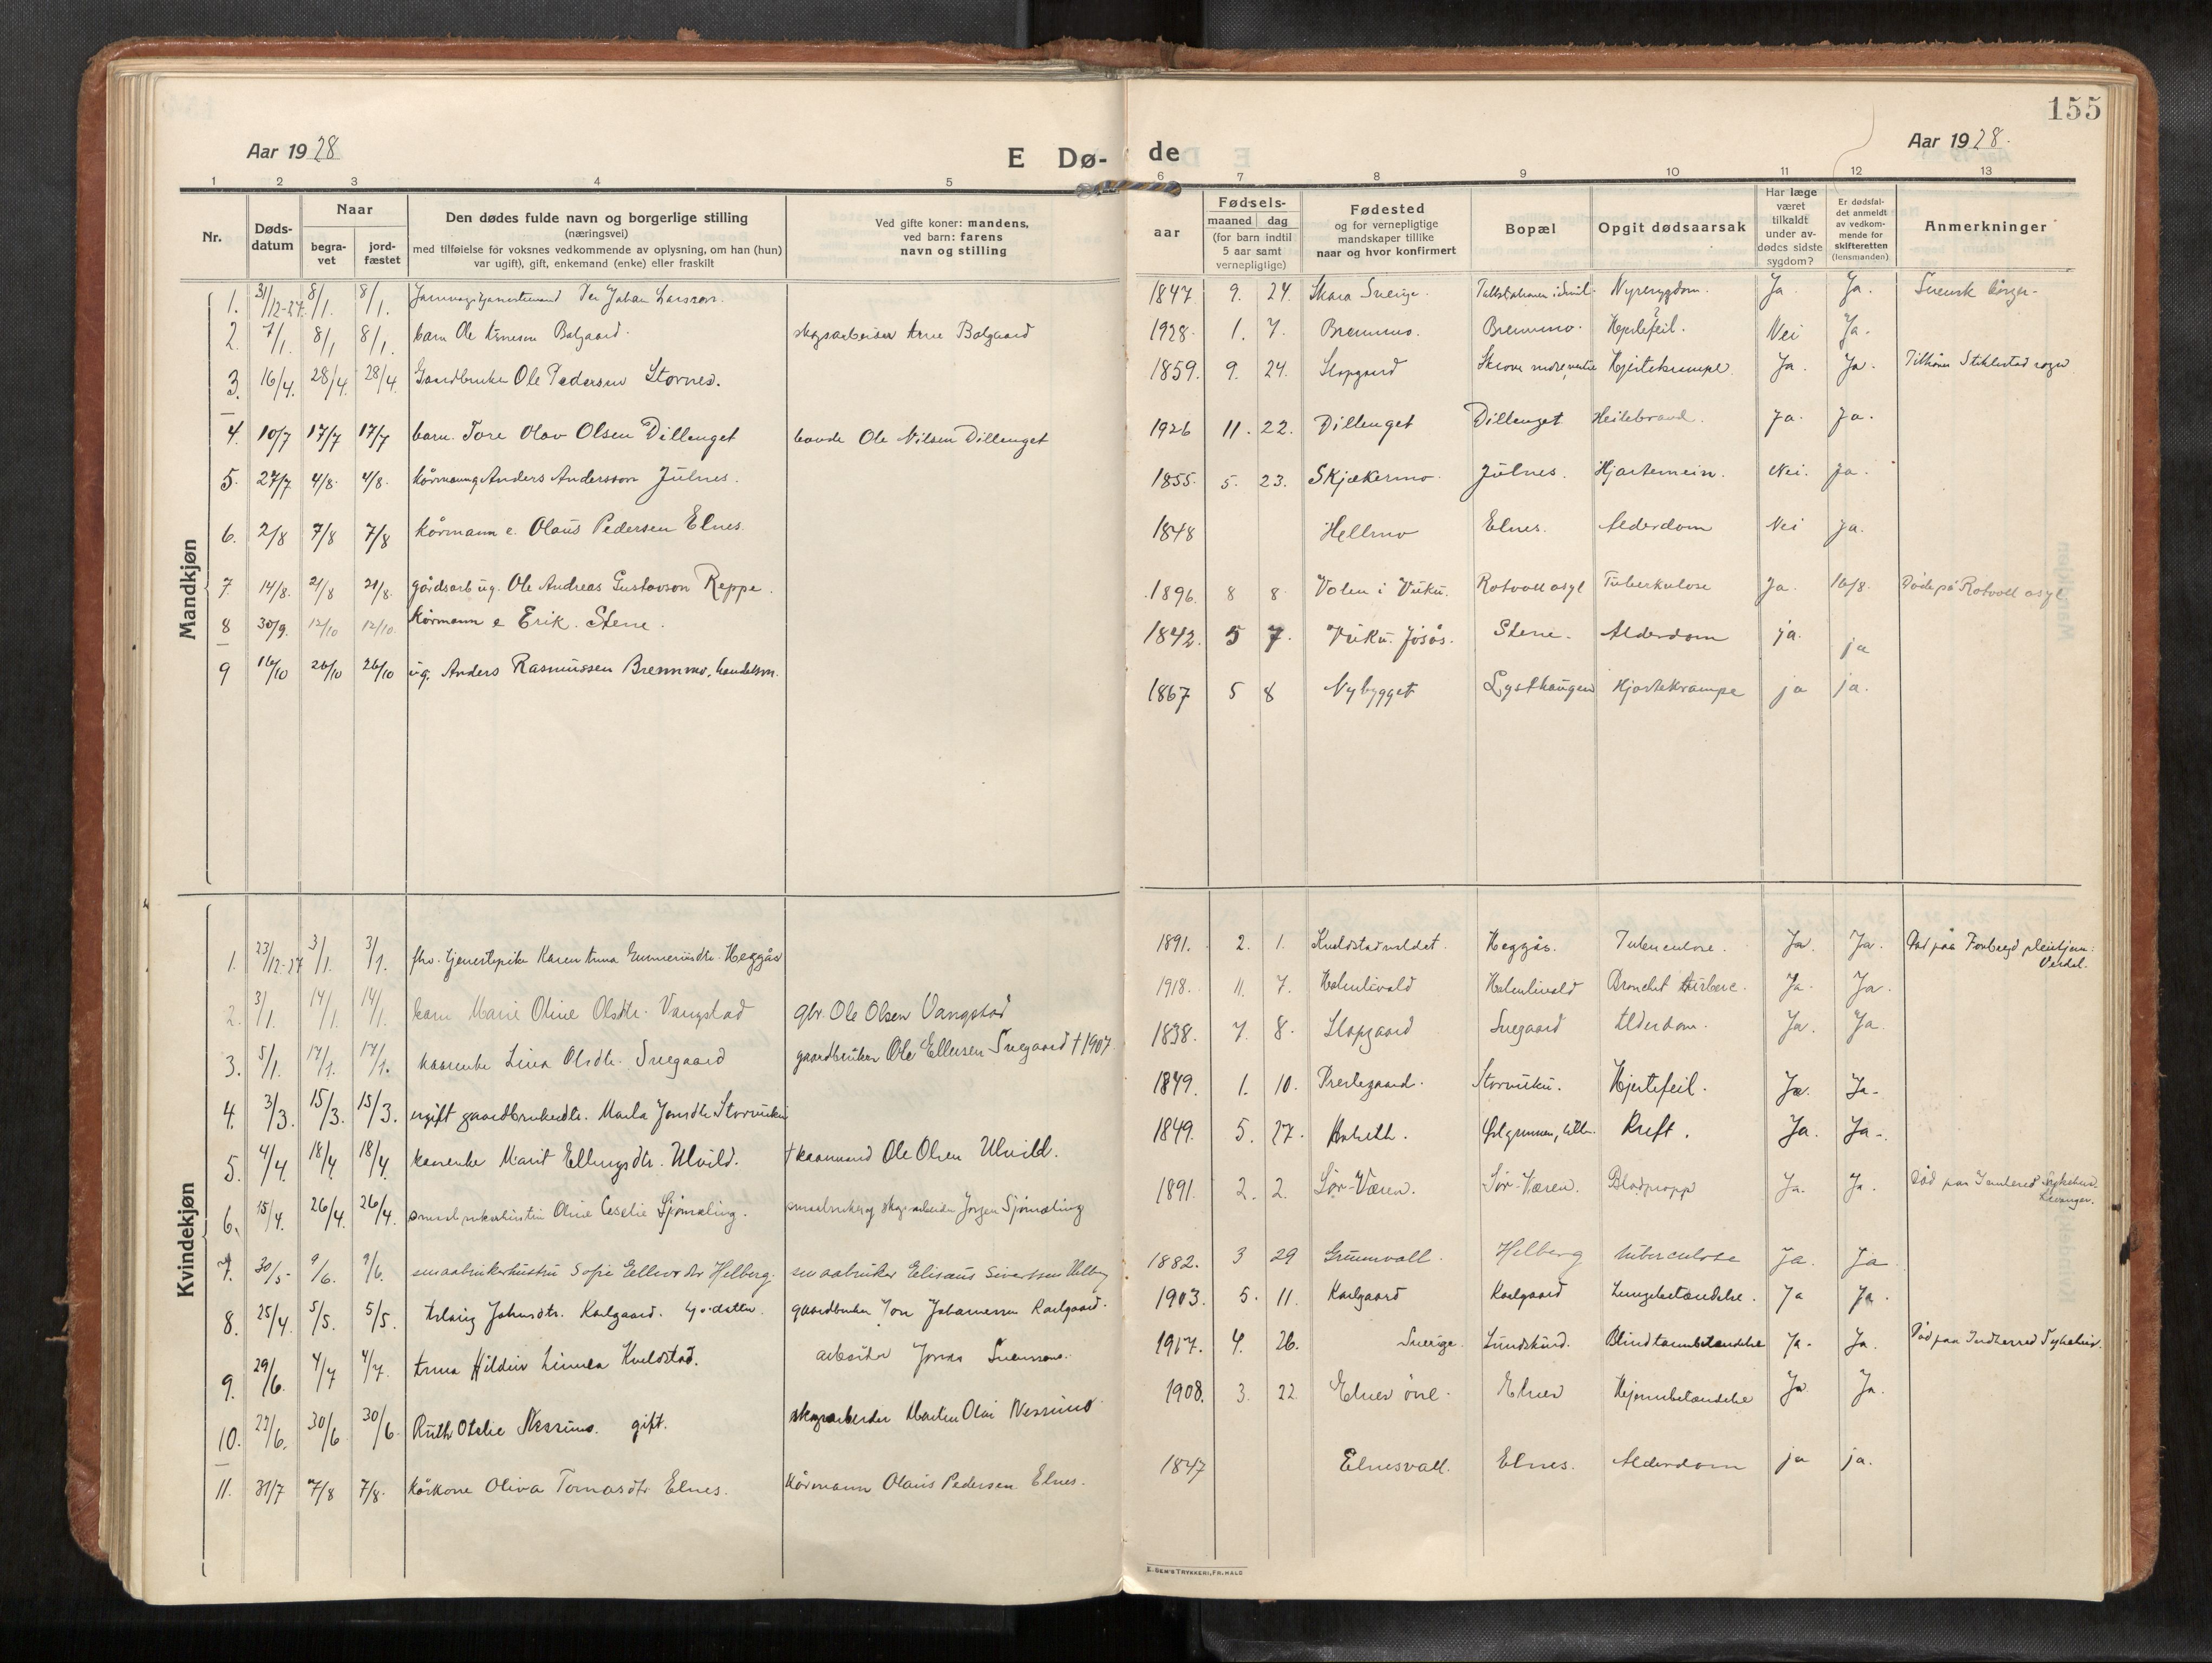 155
Aar 1928
E Dø-de
Aar 1928.
1 2 3 4 5 6 7 8 9 10 11 12 13
Nr.
Døds-datum
Naar
begra-vet
jord-fæstet
Den dødes fulde navn og borgerlige stilling
(næringsvei)
med tilføielse for voksnes vedkommende av oplysning, om han (hun)
var ugift), gift, enkemand (enke) eller fraskilt
Ved gifte koner: mandens,
ved barn: farens
navn og stilling
aar
Fødsels-
maaned dag
(for barn indtil
5 aar samt
vernepligtige)
Fødested
og for vernepligtige
mandskaper tillike
naar og hvor konfirmert
Bopæl
Opgit dødsaarsak
Har læge
været
tilkaldt
under av-
dødes sidste
sygdom?
Er dødsfal-
det anmeldt
av vedkom-
mende for
skifteretten
(lensmanden)
Anmerkninger
Mandkjøn
1. 31/12-27 8/1. 8/1. Per Johan Larsson. 1847 9. 24. Skara Sverige. Nyresygdom. Ja. Ja. Svensk borger.
2. 7/1. 8/1 8/1. barn Ole Arnesen Balgaard. skogsarbeider Arne Balgaard 1928. 1. 7. Bremmo. Bremmo. Hjertefeil. ? Nei Ja.
3. 16/4. 28/4. 28/4. Gaardbruker Ole Pedersen Stornes. 1859. 9. 24. Hjertekrampe Ja. Ja. Tilhører Stiklestad sogn
4. 10/7 17/7 17/7 barn. Tore Olav Olsen Dillenget bonde Ole Nilsen Dillenget 1926 11. 22. Dillenget Dillenget Ja. Ja.
5. 27/7 4/8. 4/8. Anders Andersson Julnes. 1855. 5. 23. Skjækermo. Julnes. Hjartemein. Nei. Ja.
6. 2/8 7/8 7/8 Kårmann e. Olaus Pedersen Elnes. 1848 Hellmo Elnes. Alderdom Nei Ja.
7 14/8. 21/8 21/8. gårdsarb ug. Ole Andreas Gustavson Reppe. 1896. 8 8 Volen i Vuku. Rotvoll asyl Tuberkulose Ja. 16/8. Døde på Rotvoll asyl
8 30/9. 12/10 12/10. Kårmann e Erik. Stene. 1842. 5 7. Vuku. Jøsås. Stene. Alderdom ja. ja
9 16/10 26/10 26/10 ug. Anders Rasmussen Bremmo, handelsm. 1867 5 8 Nybygget Lysthaugen Hjartekrampe ja ja.
Kvindekjøn
1. 23/12-27 3/1. 3/1. fhv. tjenestepike Karen Anna Gunneriusdtr. Heggås 1891. 2. 1. Heggås. Tuberculose. Ja. Ja. Død paa Forbregd pleiehjem.
Verdal.
2. 3/1. 14/1. 14/1. barn Marie Oline Olsdtr. Vangstad gbr. Ole Olsen Vangstad 1918. 11. 7. Holmlivald Holmlivald Ja. Ja.
3. 5/1. 17/1. 17/1. kaarenke Lina Olsdtr. Snegaard gaardbruker Ole Ellevsen Snegaard † 1907 1838. 7. 8. Snegaard Alderdom. Ja. Ja
4. 3/3. 15/3. 15/3. ugift gaardbrukerdtr. Marta Jonsdtr Storvuku 1849. 1. 10. Prestegaard. Storvuku. Hjertefeil. Ja. Ja.
5. 4/4. 18/4. 18/4. kaarenke Marit Ellingsdtr. Ulvild. † kaarmand Ole Olsen Ulvild. 1849. 5. 27. Ja. Ja.
6. 15/4. 26/4. 26/4. Oline Cecelie Gjømæling. smaabruker og skogsarbeider Jørgen Gjømæling 1891. 2. 2. Sør-Væren. Sør-Væren. Blodpropp Ja. Ja. Død paa Innherred Sykehus.
Levanger.
7. 30/5. 9/6. 9/6. smaabrukerhustru Sofie Ellevsdtr Helberg. smaabruker Elisæus Sivertsen Helberg 1882. 3 29 Grunnvall. Helberg tuberculose Ja. Ja
8. 25/4. 5/5. 5/5. Aslaug Johnsdtr. Karlgaard. gaardbruker Jon Johannessen Karlgaard. 1903. 5. 11. Karlgaard Karlgaard Lungebetændelse. Ja Ja.
9. 29/6. 4/7 4/7. Anna Hildur Linnea Kveldstad. arbeider Jonas Svensson. 1917. 4. 26. Sverige. Lundskind. Blindtarmbetændelse Ja. Ja. Død paa Innherred Sykehus.
10. 22/6. 30/6 30/6. Ruth Otelie Nessimo. gift. skogsarbeider Martin Olai Nessimo 1908. 3. 22. Elnes øvre. Elnes Hjernebetændelse Ja. Ja.
11. 31/7 7/8 7/8. Kårkone Oliva Tomasdtr Elnes. Kårmann Olaus Pedersen Elnes. 1847 Elnesvall. Elnes. Alderdom ja ja.
E. SEM'S TRYKKERI, FR.HALD